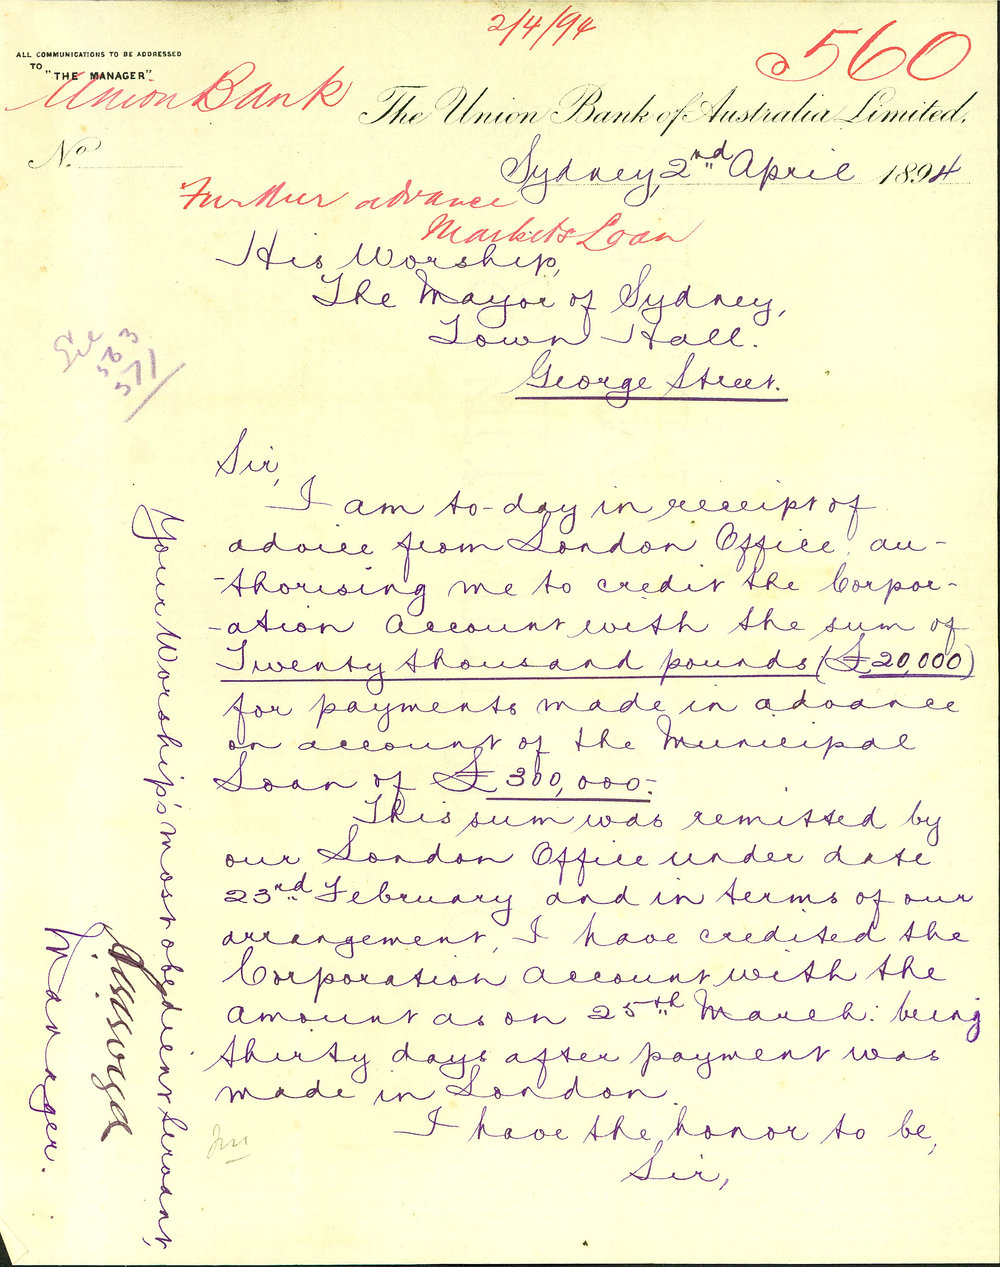 2/4/94
560
ALL COMMUNICATIONS TO BE ADDRESSED
TO
"THE MANAGER".
Union Bank
The Union Bank of Australia Limited.
No.
Sydney, 2nd April 1894
Further advance
Markets Loan
His Worship,
The Mayor of Sydney,
Town Hall.
George Street.
See
563
571
Sir,
I am to-day in receipt of
advice from London Office au-
-thorising me to credit the Corpor-
-ation Account with the sum of
Twenty thousand pounds (£20,000)
for payments made in advance
on account of the Municipal
Loan of £300,000.
This sum was remitted by
our London Office under date
23rd February and in terms of our
arrangement, I have credited the
Corporation Account with the
amount as on 25th March: being
thirty days after payment was
made in London.
I have the honor to be,
Sir,
Your Worship's most obedient Servant,
Manager.